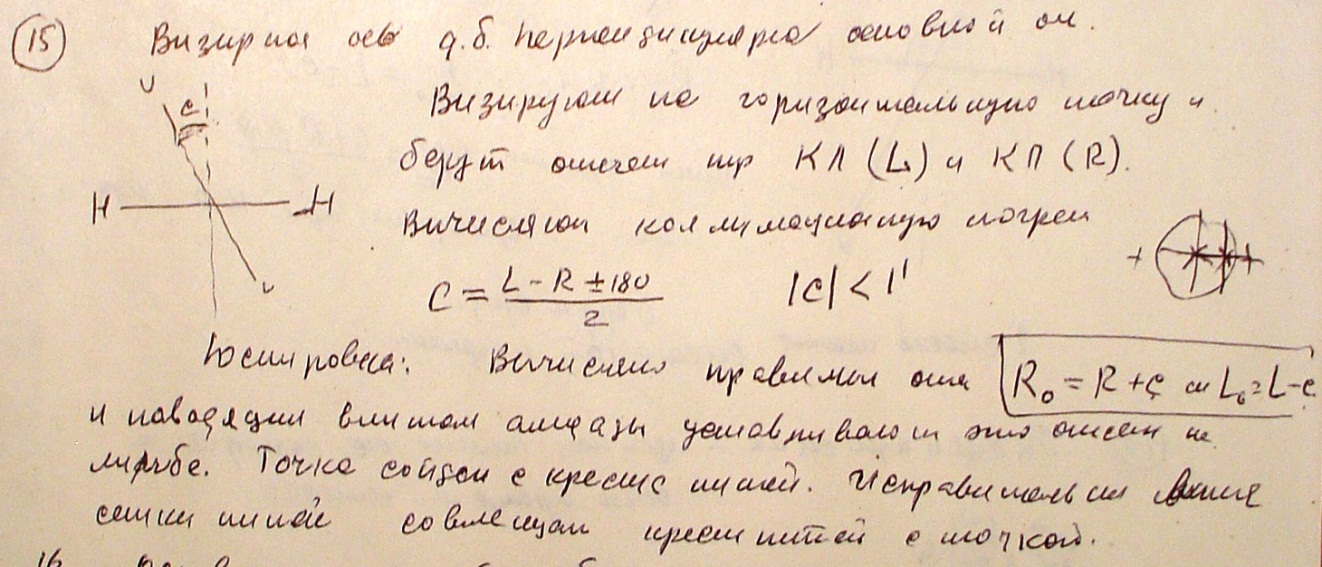 15 Визирная ось д.б. перпендикулярна основной ои.
Визируют на горизонтальную точку и
берут отсчет при КЛ (L) и КП (R).
Вычисляют коллимационную погреш
C = (L - R ± 180) / 2    |c| < 1'
Юстировка: Вычисляют правильный R₀ = R + c или L₀ = L - c
и наводящим винтом алидады устанавливают этот отсчет на
лимбе. Точка сойдет с креста нитей. Исправительными
сетки нитей совмещают крест нитей с точкой.
c
H H
16